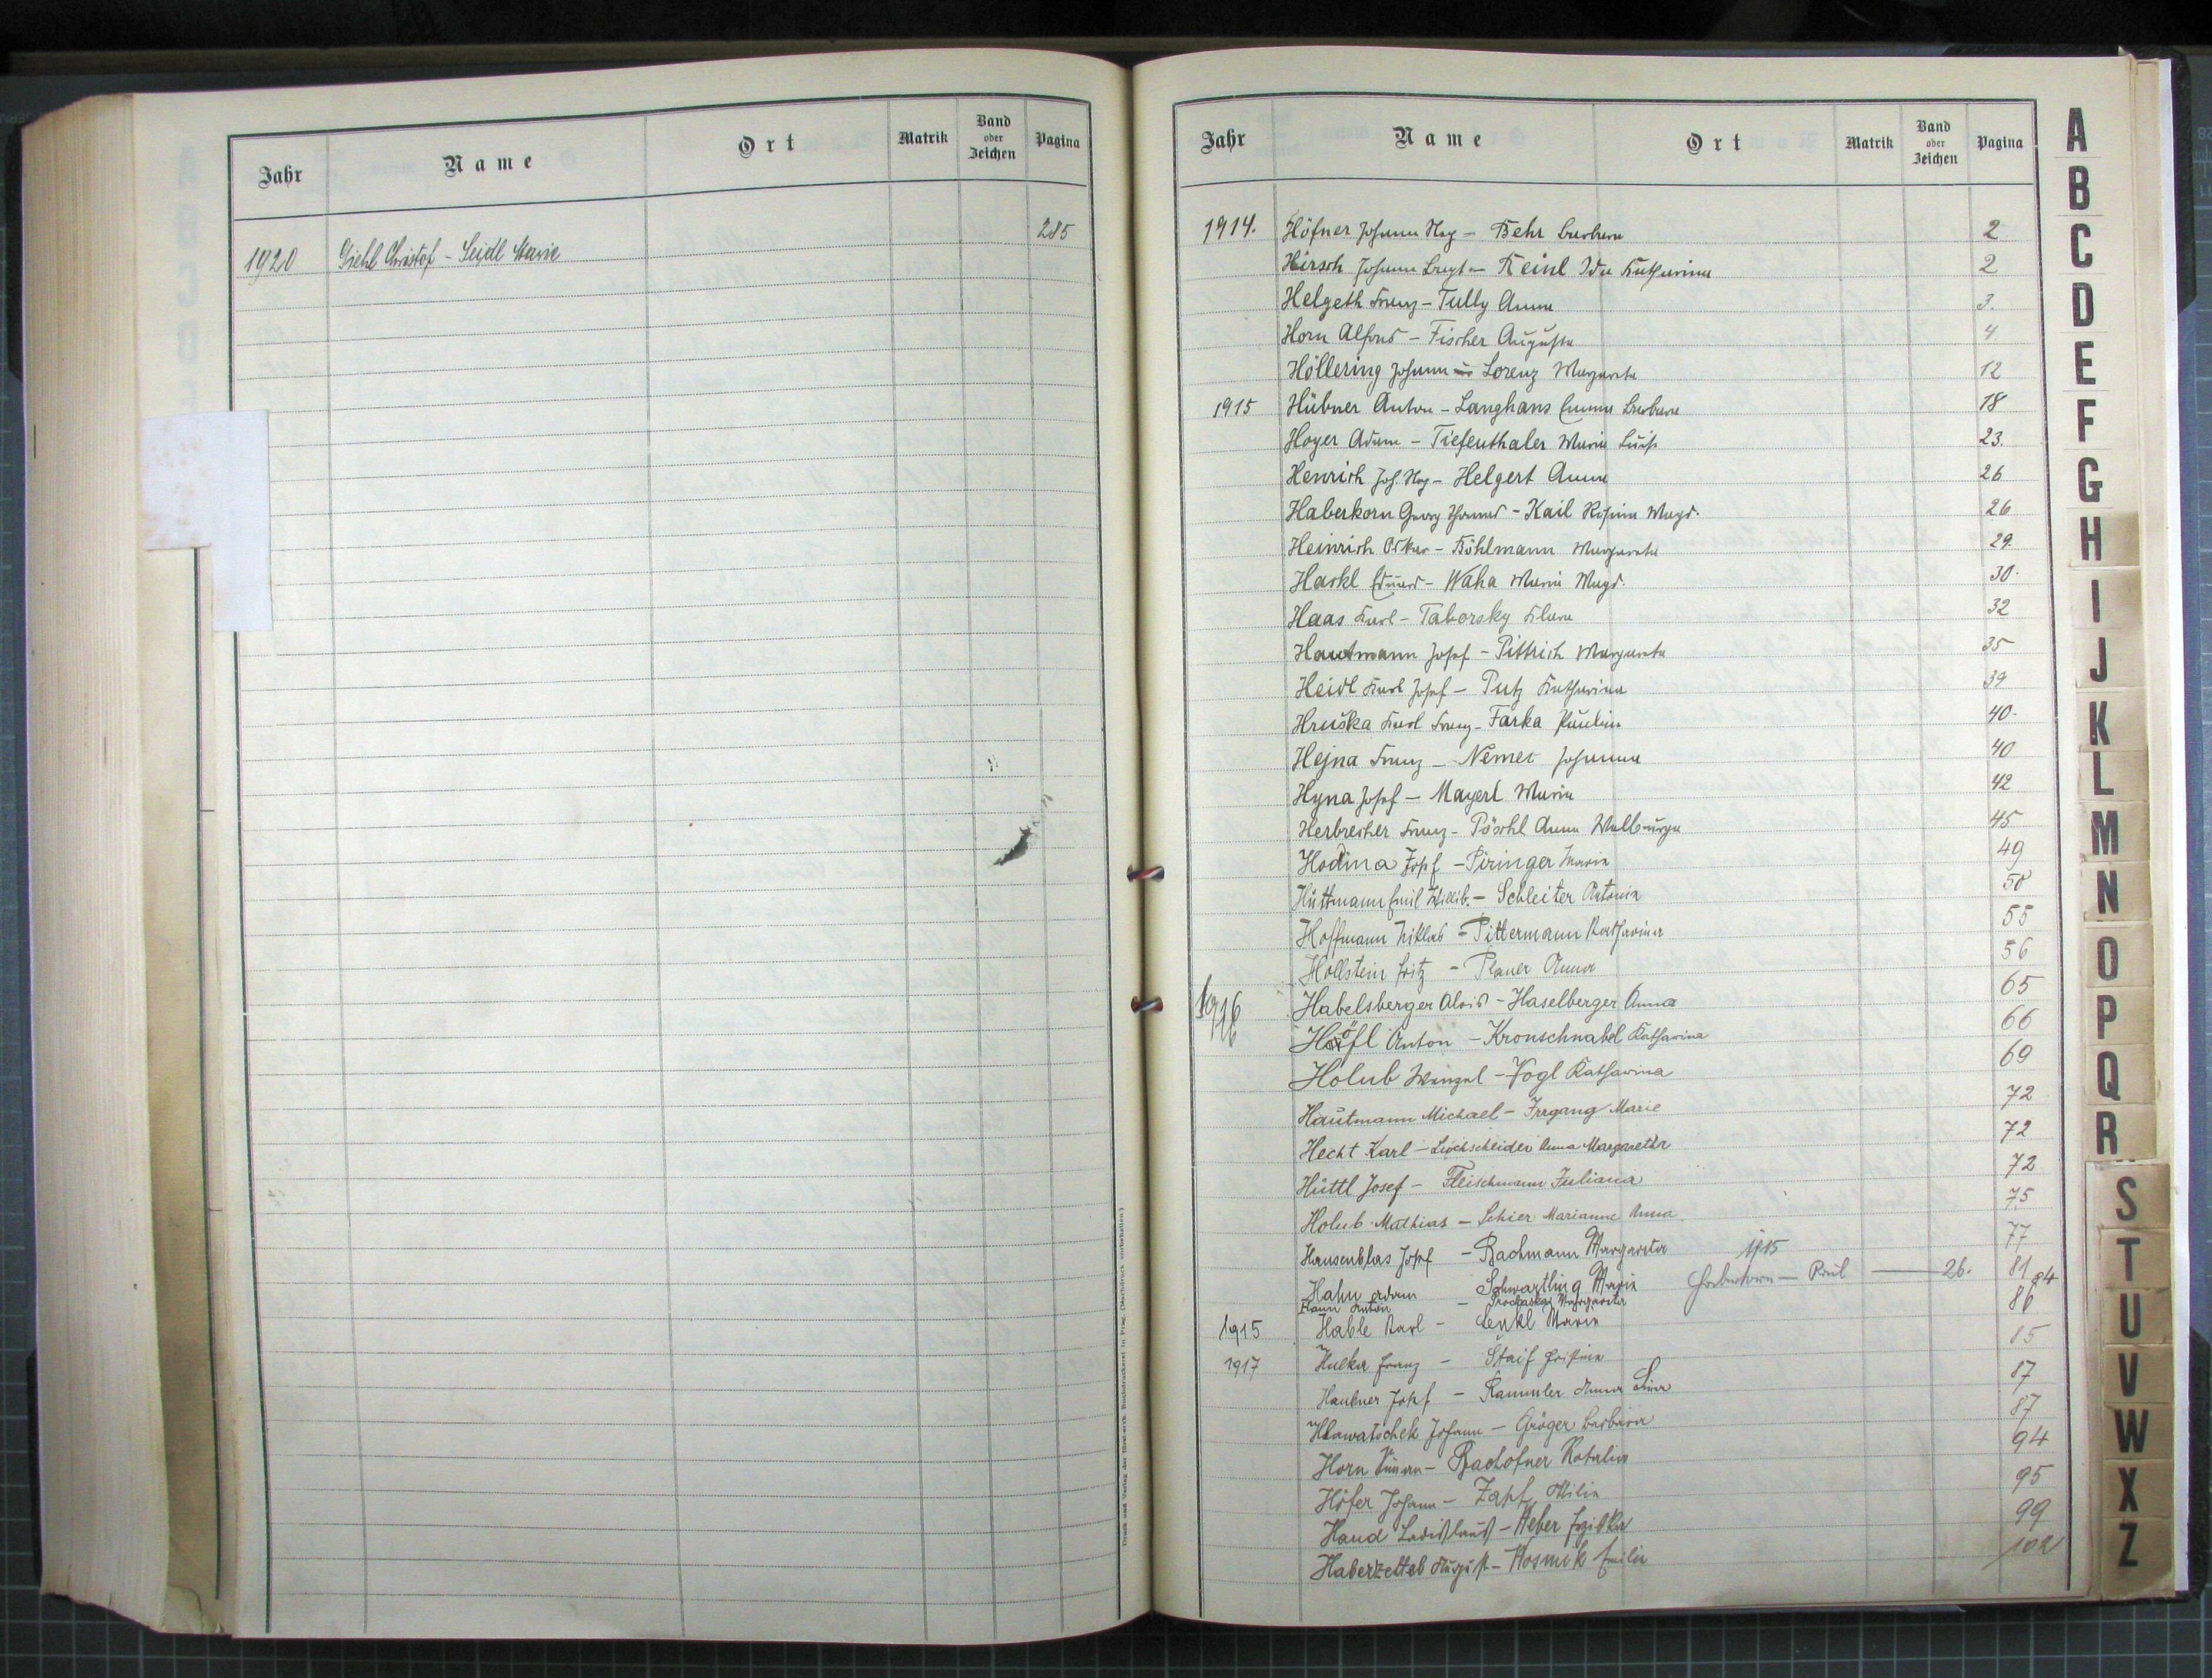 Jahr Name Ort Matrik Band oder Zeichen Pagina
285
1920 Giehl Christof - Seidl Marie
Druck und Verlag der k. Buchdruckerei in Prag. (Nachdruck vorbehalten.)
Jahr Name Ort Matrik Band oder Zeichen Pagina
1914. Höfner Johann - Behr Barbara 2
Hirsch Johann - Keinl Ida Katharina 2
Helgeth Franz - Tully Anna 3.
Horn Alfons - Fischer Augusta 4
Höllering Johann - Lorenz Margareta 12
1915 Hübner Anton - Langhans Emma Barbara 18
Hoyer Adam - Tiefenthaler Maria Luise 23.
Henrich Joh. - Helgert Anna 26
Haberkorn Georg Thomas - Kail Rosina Magd. 26
Heinrich Oskar - Köhlmann Margareta 29.
Hackl Eduard - Waha Maria Magd. 30.
Haas Karl - Taborsky Klara 32
Hautmann Josef - Pittrich Margareta 35
Heidl Karl Josef - Putz Katharina 39
Hruška Karl Franz - Farka Paulina 40.
Hejna Franz - Nemec Johanna 40
Hyna Josef - Mayerl Maria 42
Herbrecher Franz - Pöschl Anna Walburga 45
Hodina Josef - Piringer Maria 49
Hüttmann Emil Willib. - Schleiter Antonia 50
Hoffmann Niklas - Pittermann Katharina 55
Hollstein Fritz - Planer Anna 56
1916 Habelsberger Alois - Haselberger Anna 65
Höfl Anton - Kronschnabel Katharina 66
Holub Wenzel - Vogl Katharina 69
Hautmann Michael - Irrgang Marie 72
Hecht Karl - Lochscheider Anna Margaretha 72
Hüttl Josef - Fleischmann Juliana 72
Holub Mathias - Schier Marianne Anna 75
Hausenblas Josef - Bachmann Margareta 77
1915
Hahn Adam Schwartling Maria Haberkorn - Kail - 26. 81
Hann Anton - Prochaska Margareta 84
1915 Hable Karl - Lenkl Maria 86
1917 Hucka Franz - Staif Christina 85
Haubner Josef - Rammler Anna Lina 87
Hlawatschek Johann - Gröger Barbara 87
Horn - Bachofner Rosalia 94
Höfer Johann - Zapf Ottilie 95
Hand Ladislaus - Weber 99
Haberzettel August - Wosmik Emilie 102
A
B
C
D
E
F
G
H
I
J
K
L
M
N
O
P
Q
R
S
T
U
V
W
X
Z